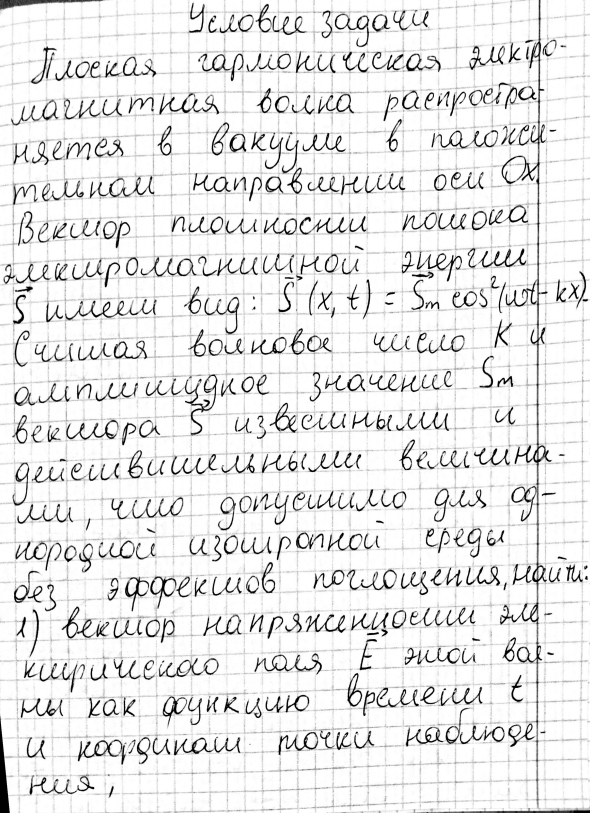 Условие задачи
Плоская гармоническая электро-
магнитная волна распростра-
няется в вакууме в положи-
тельном направлении оси Ox.
Вектор плотности потока
электромагнитной энергии
S⃗ имеет вид: S⃗(x, t) = S⃗m cos²(ωt - kx).
Считая волновое число K и
амплитудное значение Sm
вектора S⃗ известными и
действительными величина-
ми, что допустимо для од-
нородной изотропной среды
без эффектов поглощения, найти:
1) вектор напряженности эле-
ктрического поля E⃗ этой вол-
ны как функцию времени t
и координат точки наблюде-
ния;